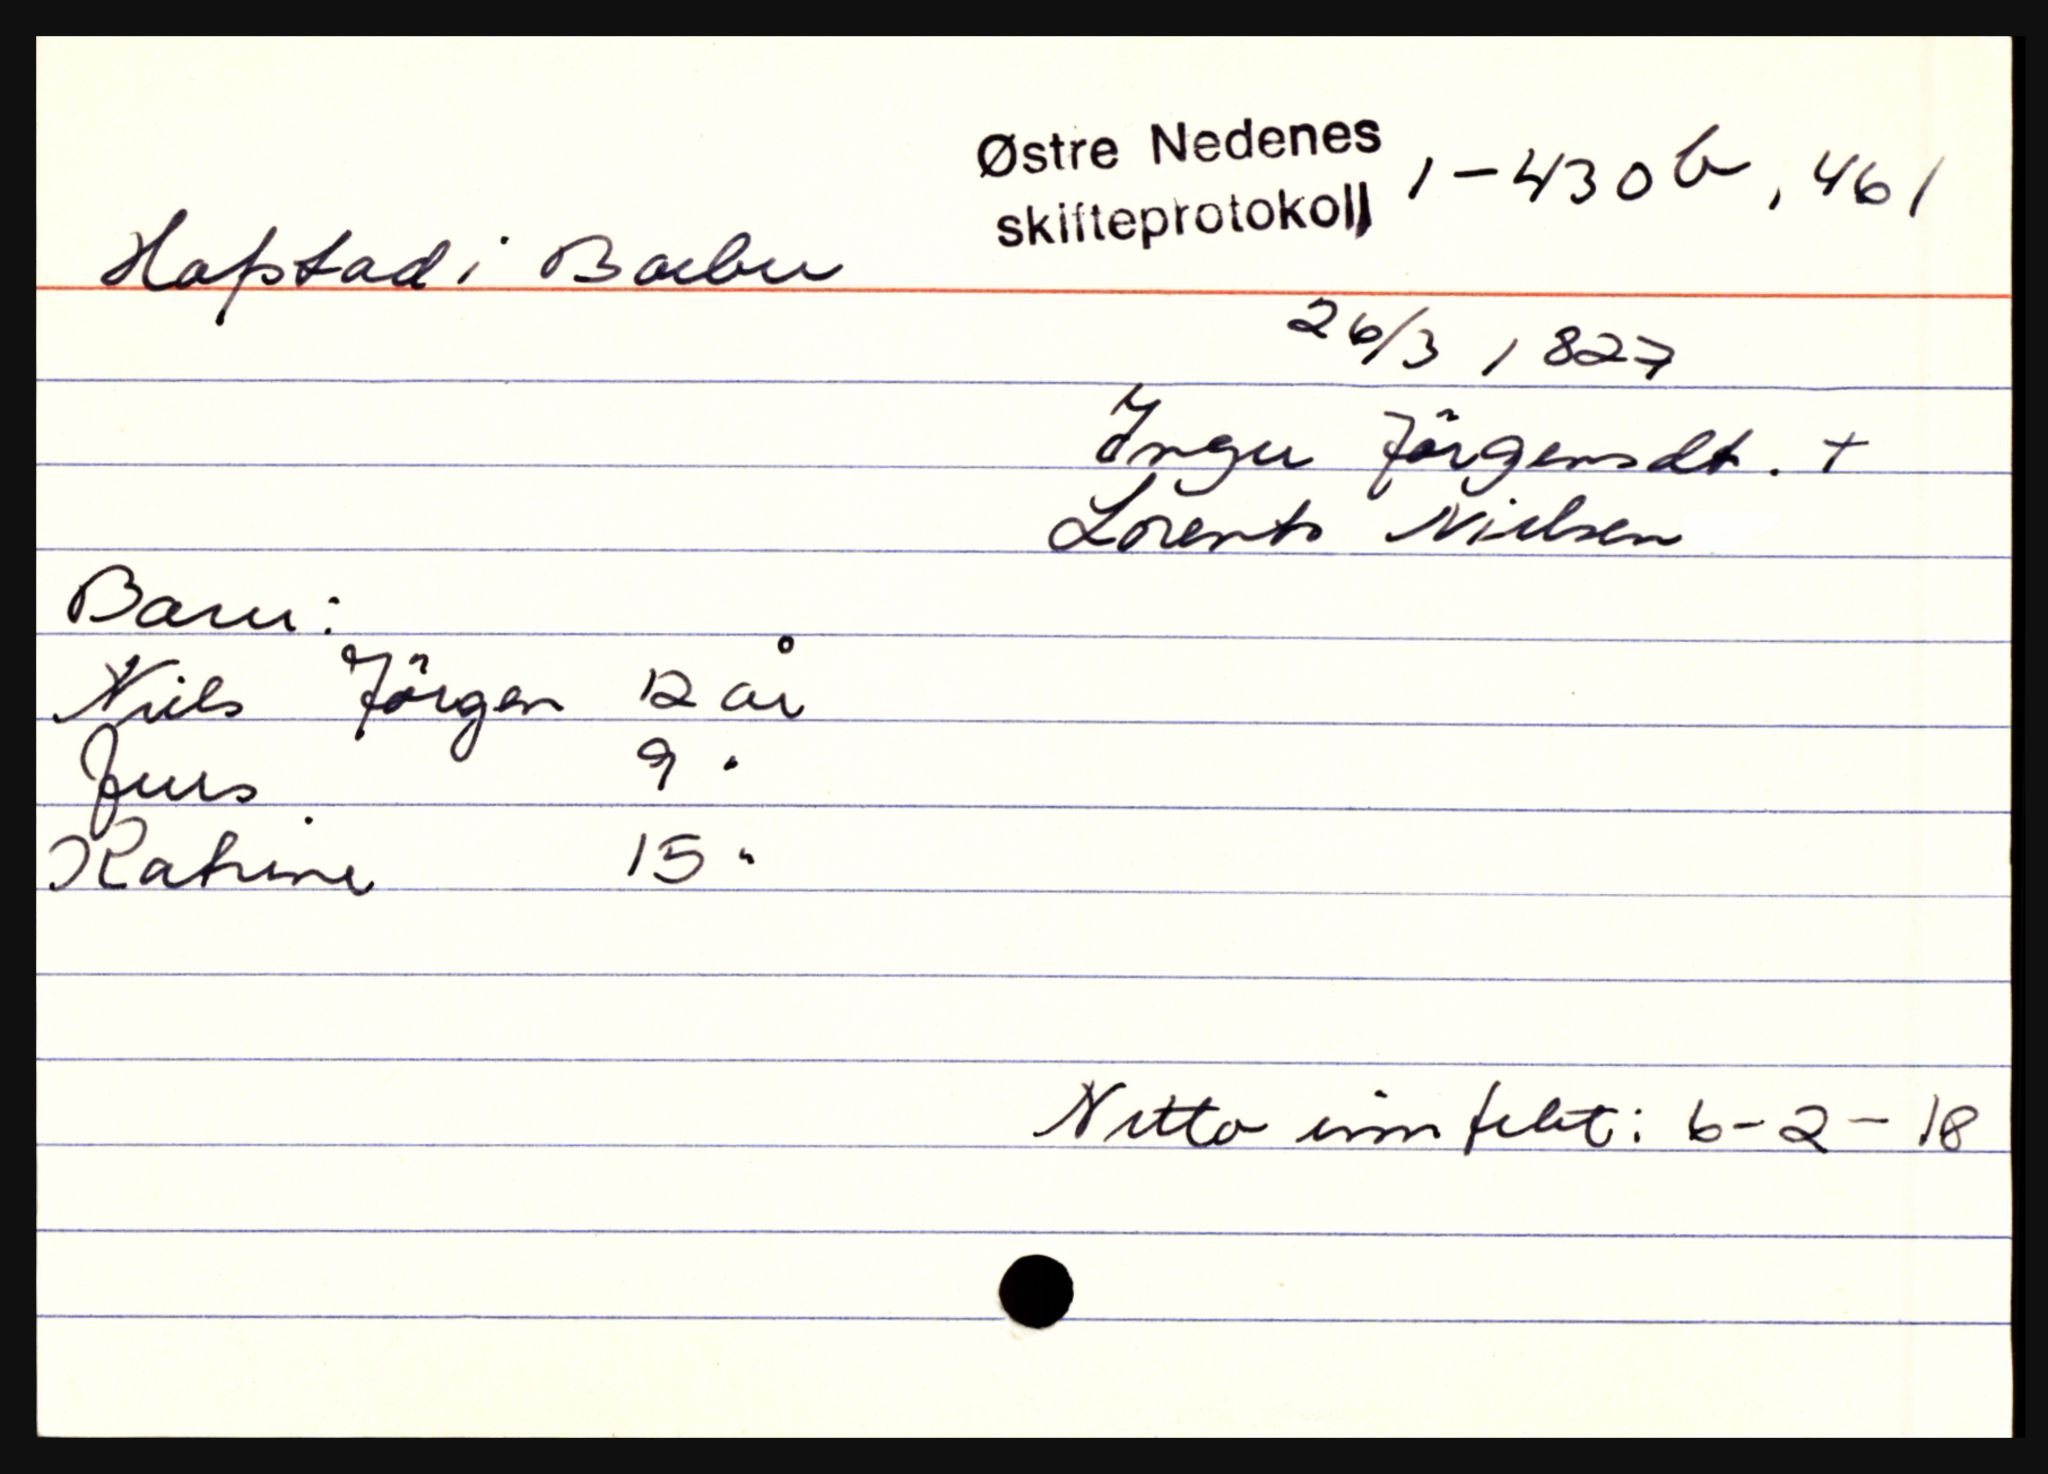 Østre Nedenes
skifteprotokoll 1-430b, 461
Hafstad i Barbu
26/3 1827
Inger Jörgensdt. +
Lorents Nielsen
Barn:
Niels Jörgen 12 år
Jens 9 "
Katrine 15 "
Netto innfekt: 6-2-18